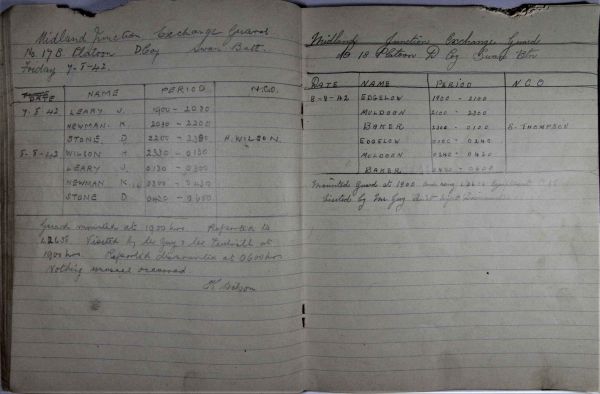 Midland Junction Exchange Guard
No. 17 B. Platoon D Coy Swan Batt.
Friday 7-8-42.
DATE NAME PERIOD N.C.O.
7-8-42 LEARY J. 1900 - 2030
NEWMAN K. 2030 - 2200
STONE D. 2200 - 2330 H. WILSON.
8-8-42 WILSON H. 2330 - 0130
LEARY J. 0130 - 0300
NEWMAN K. 0300 - 0430
STONE D. 0430 - 0600
Guard mounted at 1900 hrs. Reported to
L2635 Visited by Lee Guy & Lee at
1900 hrs. Reported dismounted at 0600 hrs
Nothing unusual occurred
H Wilson
Midland Junction Exchange Guard
No 18 Platoon D Coy Swan Btn
DATE NAME PERIOD N.C.O
8-8-42 EDGELOW 1900 - 2100
MULDOON 2100 - 2300
BAKER 2300 - 0100 S. THOMPSON
EDGELOW 0100 - 0240
MULDOON 0240 - 0420
BAKER 0420 - 0600
Mounted Guard at 1900 and rang
Visited by Mr. Guy